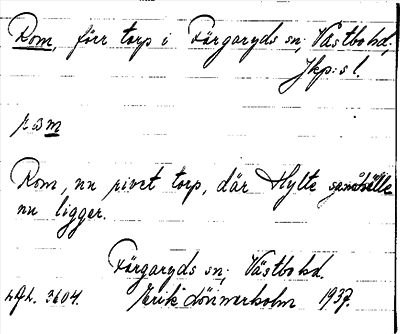 Rom, förr torp i Färgaryds sn, Västbo hd,
Jkp:s l.
Rom, nu rivet torp, där Hylte samhälle
nu ligger.
Färgaryds sn, Västbo hd.
3604. Erik Lönnerholm 1937.